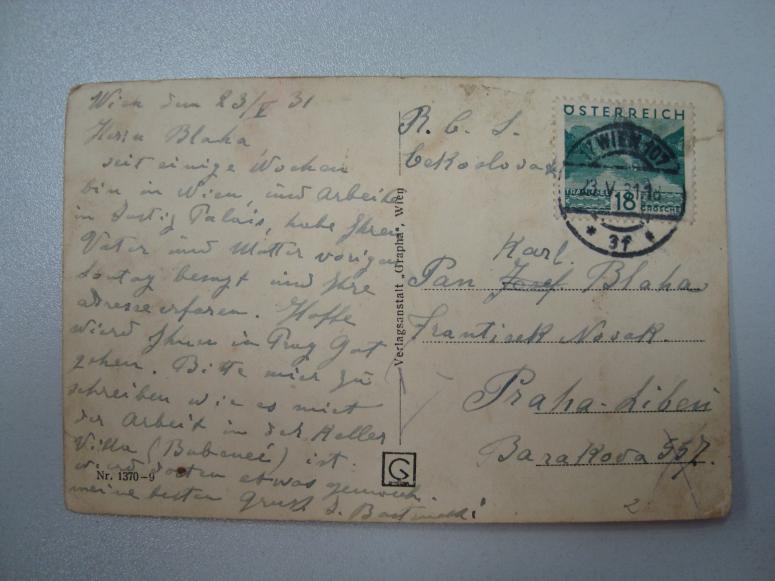 Wien den 23/V 31
Herrn Blaha
seit einige Wochen
bin in Wien, und Arbeite
in Justiz Palais, habe Ihren
Vater und Mutter vorigen
Sontag besugt und Ihre
adresse erfaren. Hoffe
wierd Ihnen in Prag Gut
gehen. Bitte mir zu
schreiben wie es miet
der Arbeit in der Heller
Villa (Bubeneč) ist.
wierd dorten etwas gemacht.
meine besten Gruss J.
Nr. 1370-9
Verlagsanstalt „Grapha", Wien
G
R. C. S.
Cekoslova
ÖSTERREICH
18
GROSCHEN
WIEN 107
23.V.31
* 3f *
Karl.
Pan Josef Blaha
Frantisek Novak.
Praha-Liben
Barakova 557.
2